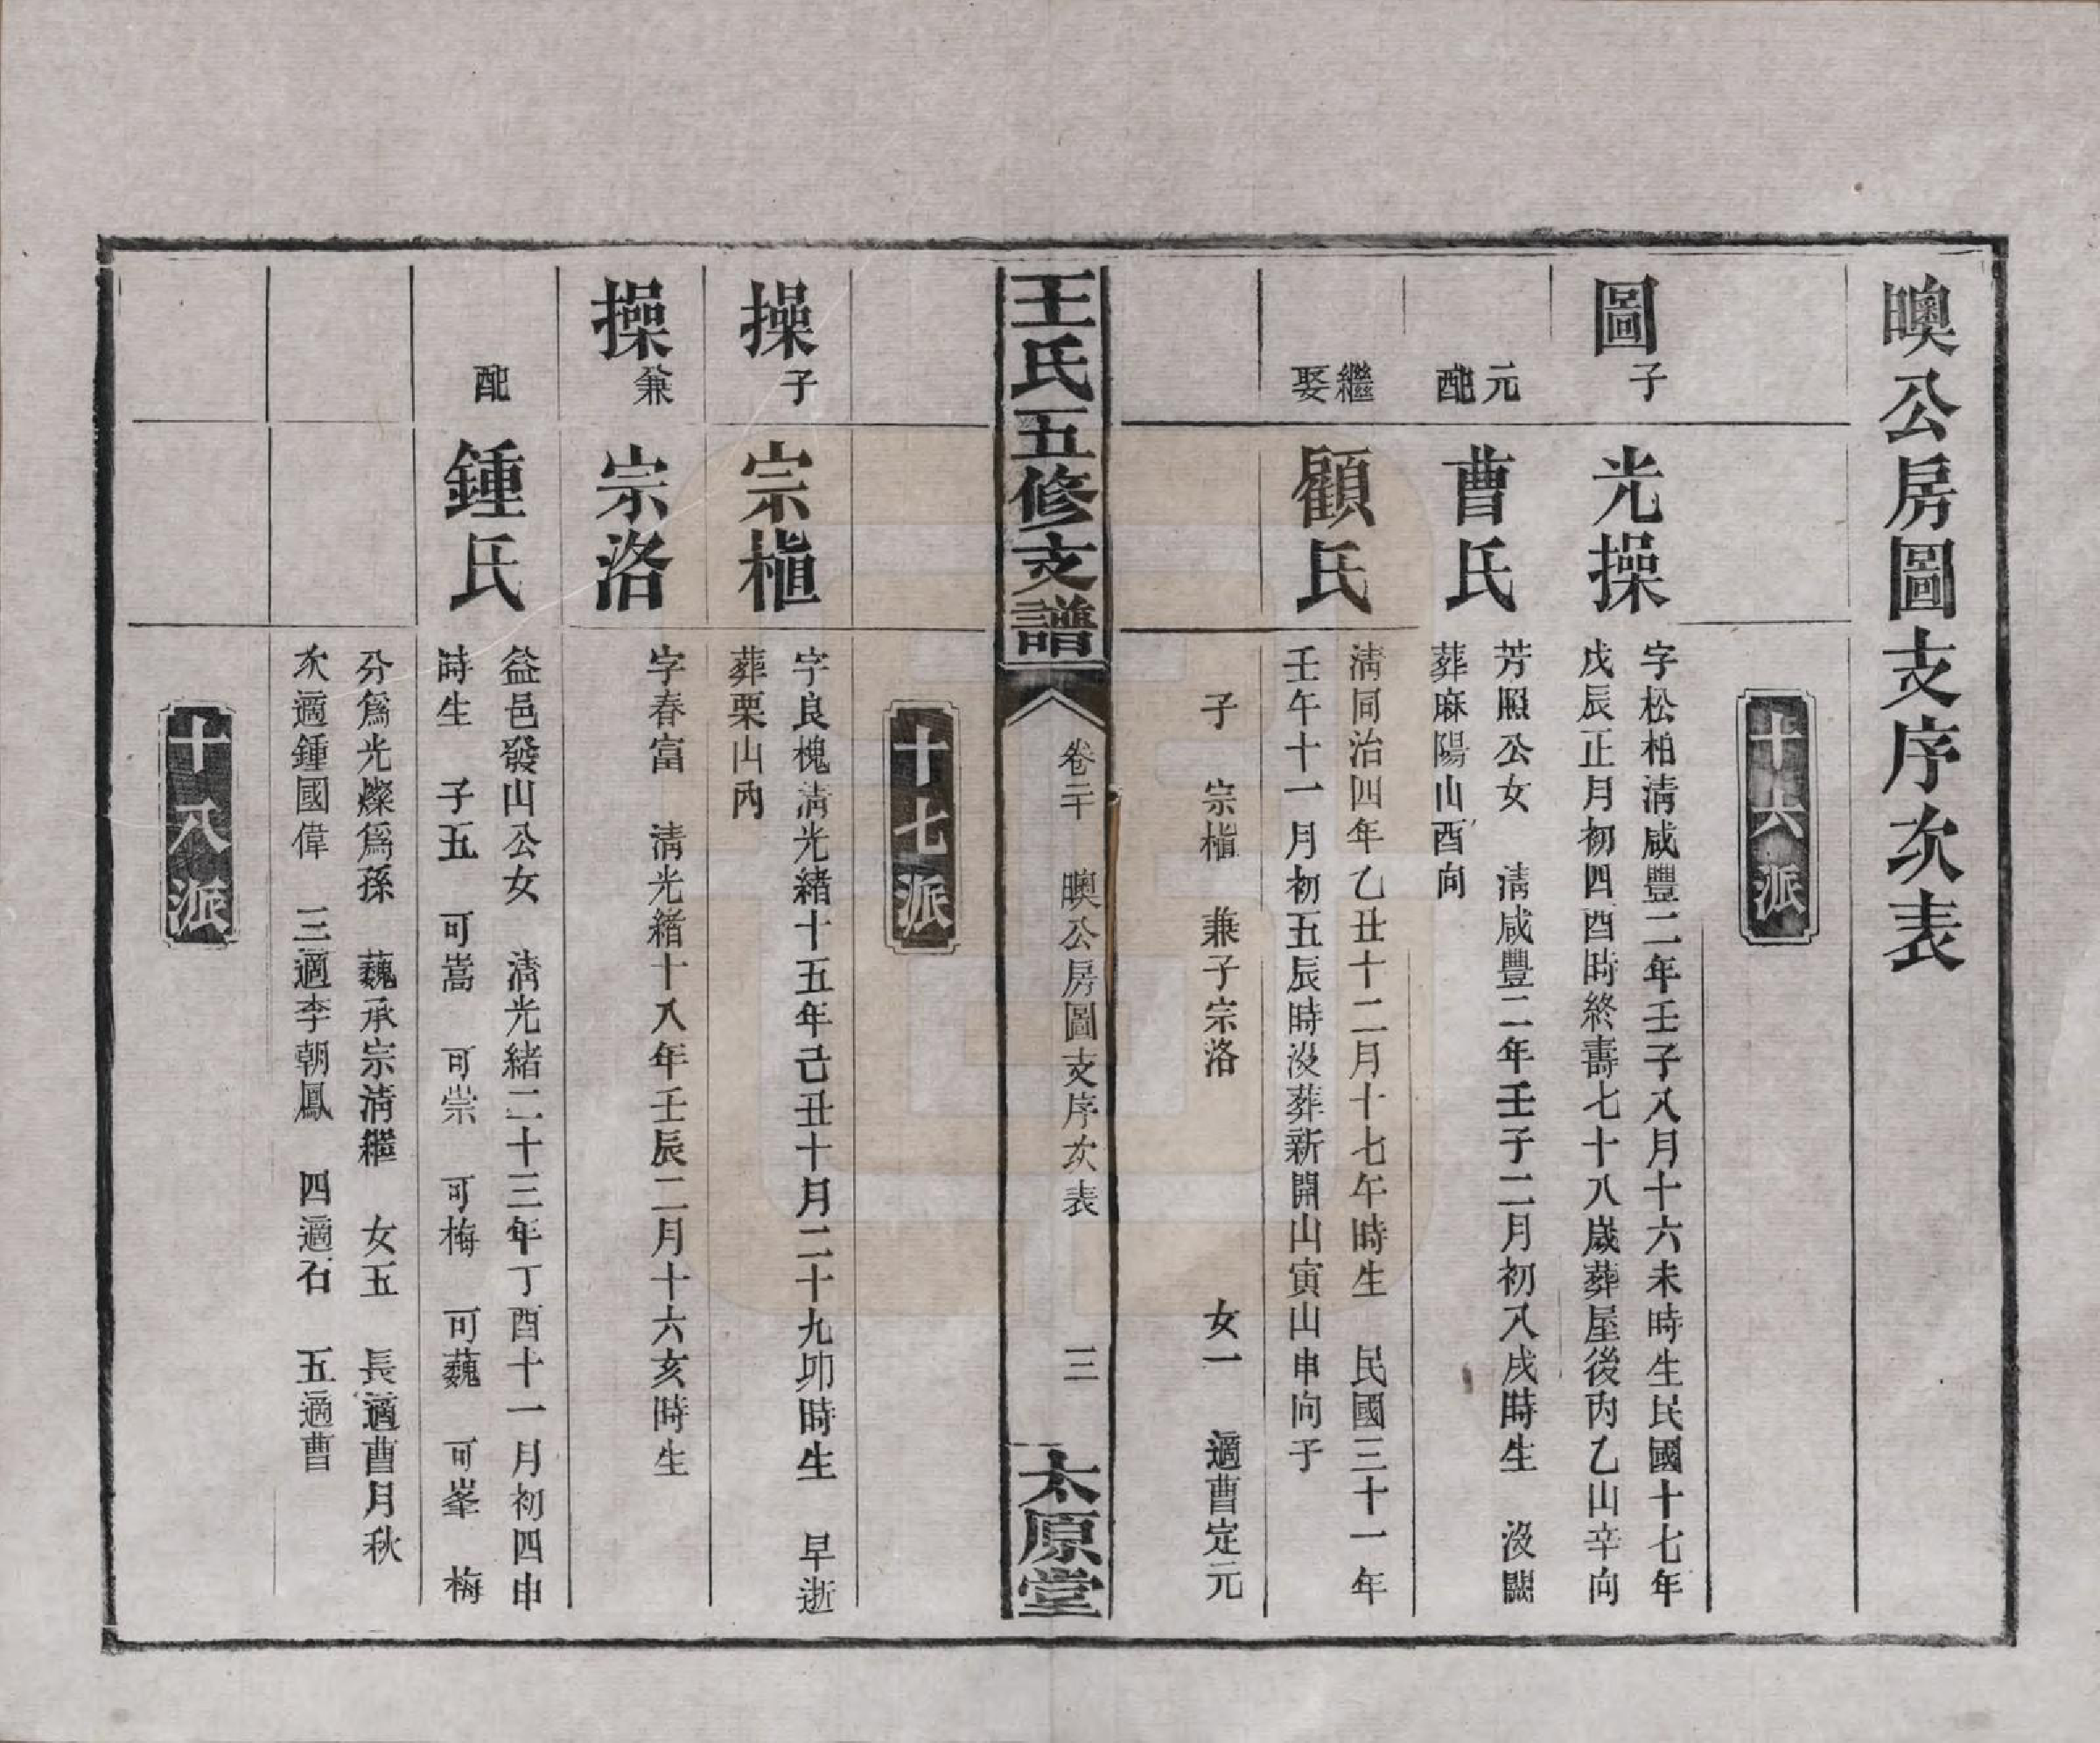 㬂公房圖支序次表
十六派
圖子
光操
字松柏清咸豐二年壬子八月十六未時生民國十七年
戊辰正月初四酉時終壽七十八歲葬屋後丙乙山辛向
元配
曹氏
芳照公女 清咸豐二年壬子二月初八戌時生 沒闕
葬麻陽山酉向
繼娶
顧氏
清同治四年乙丑十二月十七午時生 民國三十一年
壬午十一月初五辰時沒葬新開山寅山申向子
子 宗植 兼子宗洛 女一 適曹定元
王氏五修支譜
卷二十 㬂公房圖支序次表 三
太原堂
十七派
操子
宗植
字良槐清光緒十五年己丑十月二十九卯時生 早逝
葬栗山內
操兼
宗洛
字春富 清光緒十八年壬辰二月十六亥時生
配
鍾氏
益邑發山公女 清光緒二十三年丁酉十一月初四申
時生 子五 可嵩 可崇 可梅 可巍 可峯 梅
分爲光燦爲孫 巍承宗清繼 女五 長適曹月秋
次適鍾國偉 三適李朝鳳 四適石 五適曹
十八派